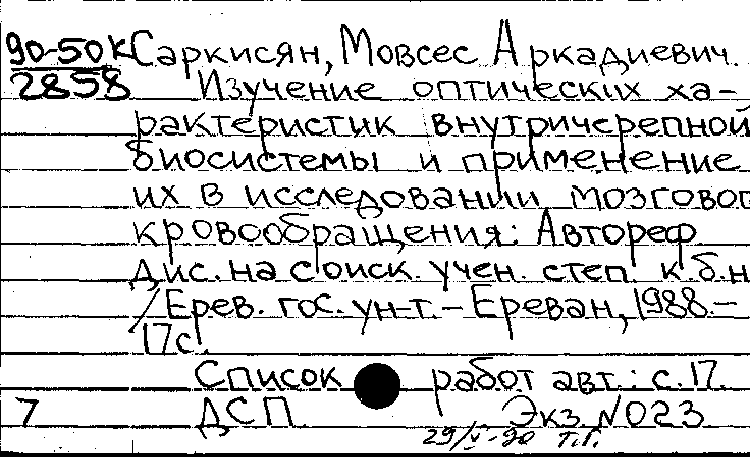 90-50К Саркисян, Мовсес Аркадиевич.
2858 Изучение оптических ха-
рактеристик внутричерепной
биосистемы и применение
их в исследовании мозговог
кровообращения: Автореф
дис. на соиск. учен. степ. к.б.н
/ Ерев. гос. ун-т. – Ереван, 1988. –
17с.
Список работ авт.: с. 17.
7 ДСП Экз. N023
29/V-90 Т.Г.